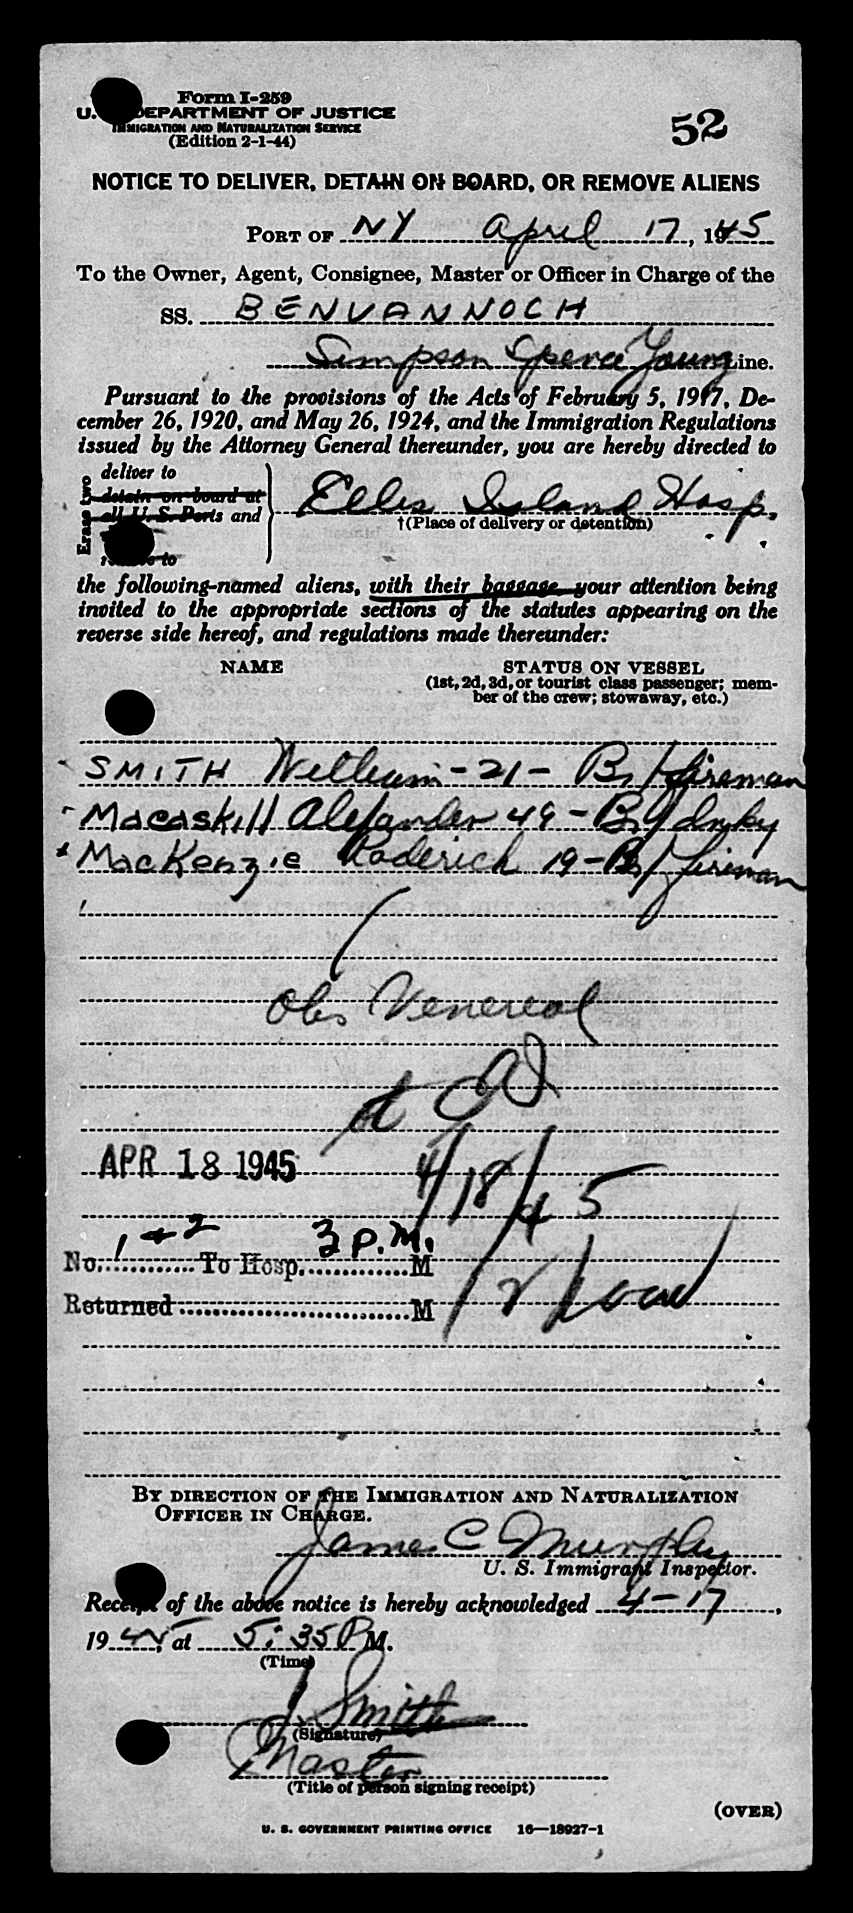 Form I-259
U. DEPARTMENT OF JUSTICE
IMMIGRATION AND NATURALIZATION SERVICE
(Edition 2-1-44)
52
NOTICE TO DELIVER, DETAIN ON BOARD, OR REMOVE ALIENS
PORT OF NY April 17, 1945
To the Owner, Agent, Consignee, Master or Officer in Charge of the
SS. BENVANNOCH
Simpson Spence Young Line.
Pursuant to the provisions of the Acts of February 5, 1917, De-
cember 26, 1920, and May 26, 1924, and the Immigration Regulations
issued by the Attorney General thereunder, you are hereby directed to
Erase two
deliver to
detain on board at
all U. S. Ports and
to
Ellis Island Hosp.
†(Place of delivery or detention)
the following-named aliens, with their baggage, your attention being
invited to the appropriate sections of the statutes appearing on the
reverse side hereof, and regulations made thereunder:
NAME STATUS ON VESSEL
(1st, 2d, 3d, or tourist class passenger; mem-
ber of the crew; stowaway, etc.)
SMITH William - 21 - Br / fireman
Macaskill Alexander 49 - Br / dnky
MacKenzie Roderick 19 - Br / fireman
Obs Venereal
APR 18 1945
4/18/45
No. 1 + 2 To Hosp. 3 P.M. M
Returned M
BY DIRECTION OF THE IMMIGRATION AND NATURALIZATION
OFFICER IN CHARGE.
James C Murphy
U. S. Immigrant Inspector.
Receipt of the above notice is hereby acknowledged 4-17,
1945, at 5:35 P M.
(Time)
J Smith
(Signature)
Master
(Title of person signing receipt)
(OVER)
U. S. GOVERNMENT PRINTING OFFICE 16—18927-1